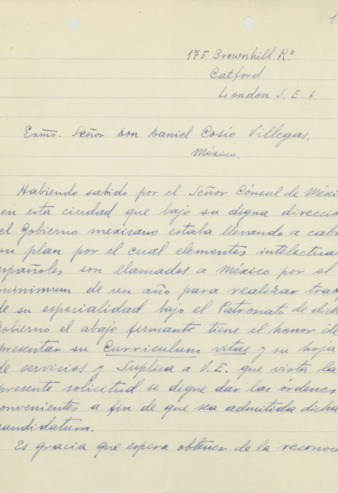 1
175 Brownhill Rd
Catford
London S.E. 6
Exmo. Señor Don Daniel Cosío Villegas,
México.
Habiendo sabido por el Señor Cónsul de Méxi
en esta ciudad que bajo su digna direccio
el Gobierno mexicano estaba llevando a cab
un plan por el cual elementos intelectua
españoles son llamados a México por el
minimum de un año para realizar tra
de su especialidad bajo el Patronato de dich
Gobierno el abajo firmante tiene el honor de
presentar su Curriculum vitae y su hoja
de servicios y Suplica a V.E. que vista la
presente solicitud se digne dar las órdenes
convenientes a fin de que sea admitida dicha
candidatura.
Es gracia que espera obtener de la reconoc